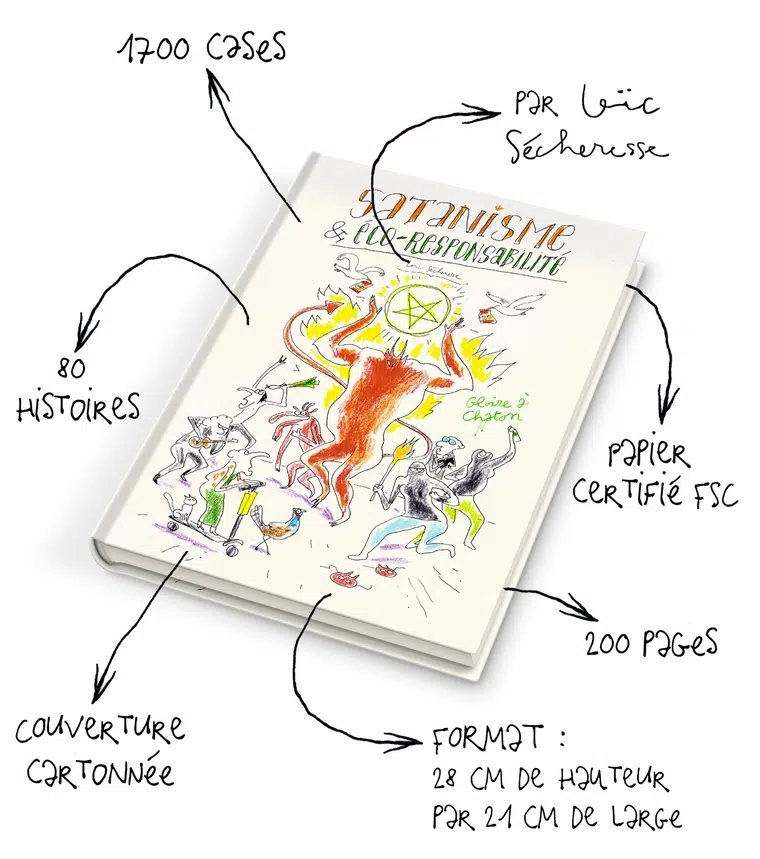 1700 CASES
PAR Loïc
Sécheresse
SATANISME
& ÉCO-RESPONSABILITÉ
Loïc Sécheresse
80
HISTOIRES
Gloire à
Chaton
PAPIER
CERTIFIÉ FSC
200 PAGES
COUVERTURE
CARTONNÉE
FORMAT :
28 CM DE HAUTEUR
PAR 21 CM DE LARGE